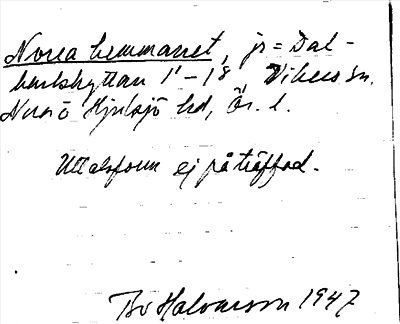 Norra hemmanet, jr = Dal-
karlshyttan 1¹ - 1⁸ Vikers sn.
Nora o Hjulsjö hd, Ör. l.
Uttalsform ej påträffad.
Br Halvarson 1947